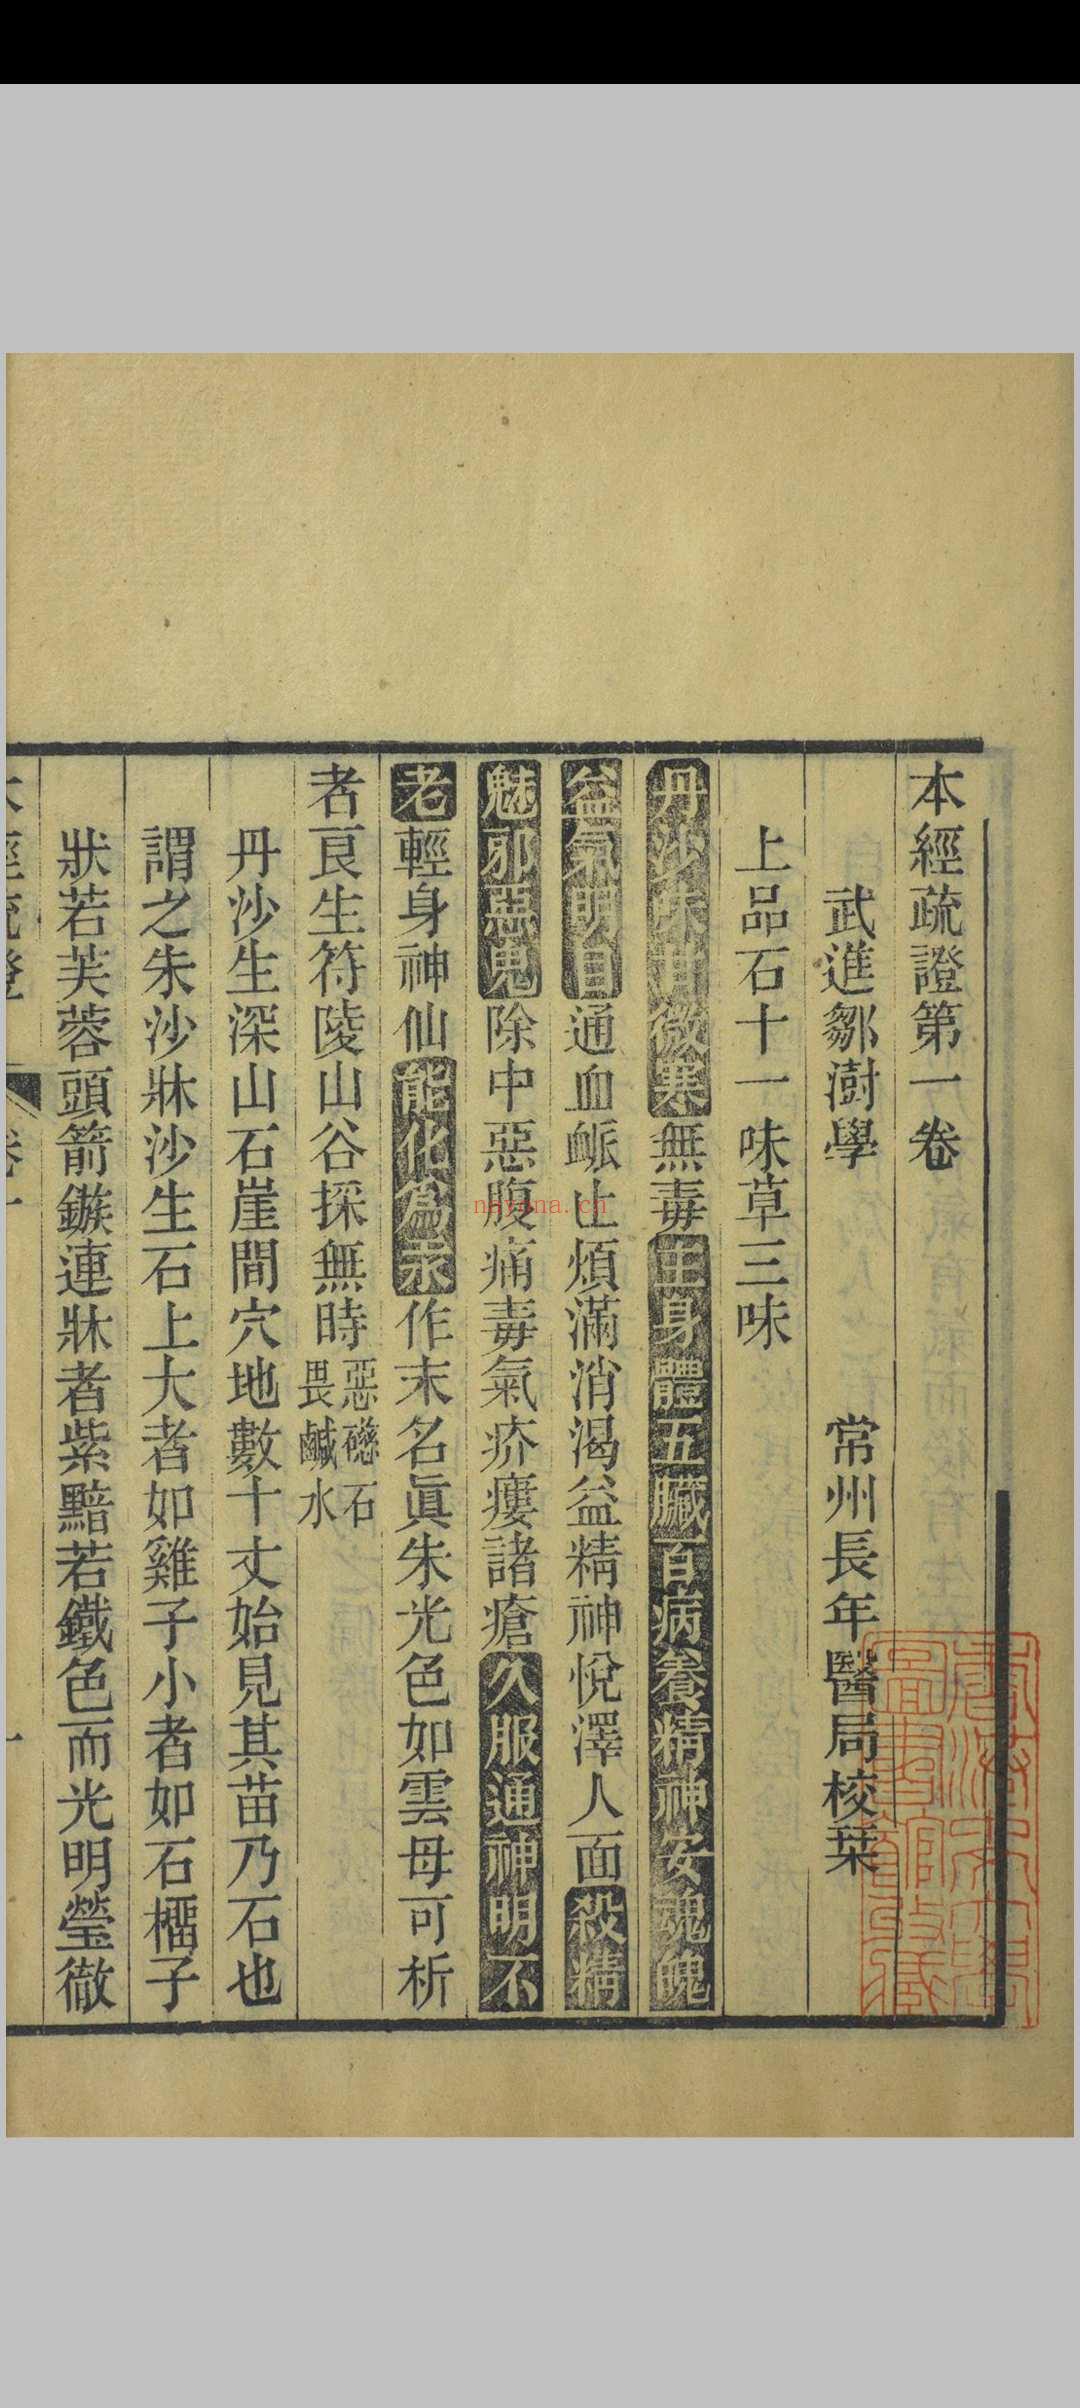 本經疏證第一卷
武進鄒澍學 常州長年醫局校栞
上品石十一味草三味
丹沙味甘微寒無毒主身體五臟百病養精神安魂魄
益氣明目通血衇止煩滿消渴益精神悅澤人面殺精
魅邪惡鬼除中惡腹痛毒氣疥瘻諸瘡久服通神明不
老輕身神仙能化為汞作末名眞朱光色如雲母可析
者良生符陵山谷採無時惡磁石畏鹹水
丹沙生深山石崖間穴地數十丈始見其苗乃石也
謂之朱沙牀沙生石上大者如雞子小者如石橊子
狀若芙蓉頭箭鏃連牀者紫黯若鐵色而光明瑩徹
本經疏證 卷一 一
nayona.cn